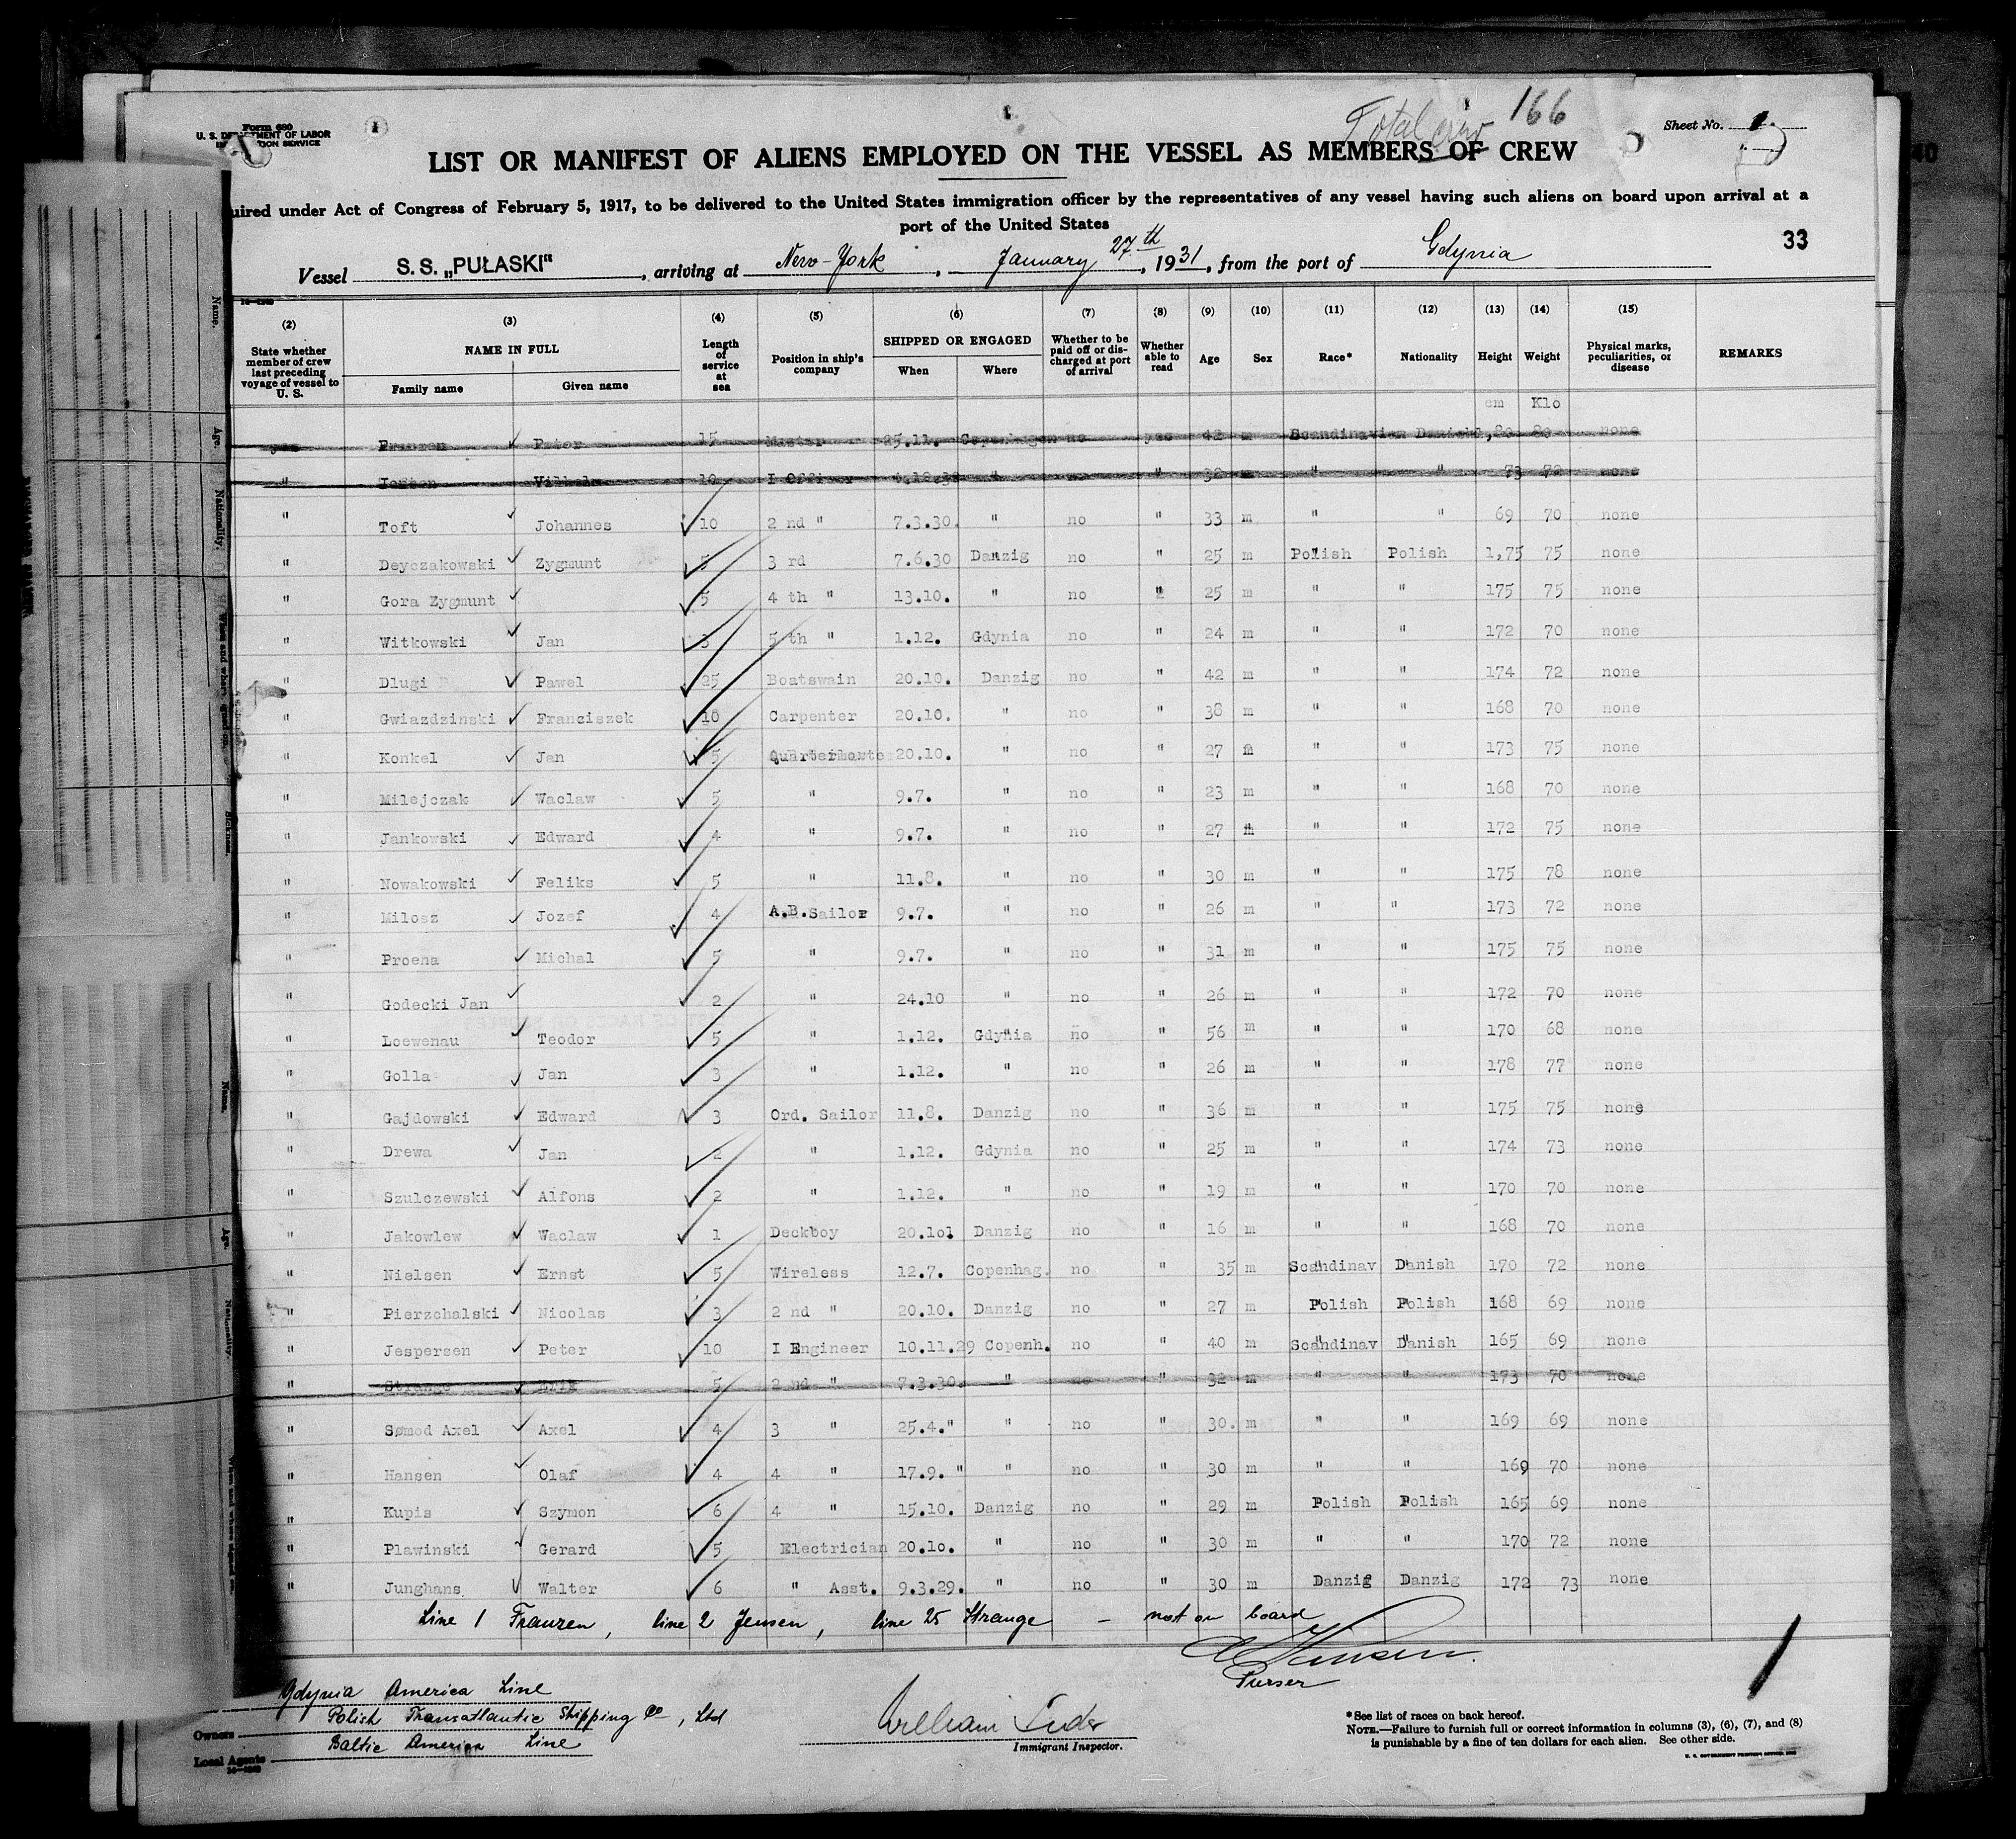 Form 680
U. S. DEPARTMENT OF LABOR
Total crew 166
Sheet No. 1
LIST OR MANIFEST OF ALIENS EMPLOYED ON THE VESSEL AS MEMBERS OF CREW
uired under Act of Congress of February 5, 1917, to be delivered to the United States immigration officer by the representatives of any vessel having such aliens on board upon arrival at a
port of the United States
33
Vessel S. S. „PUŁASKI", arriving at New-York, January 27th, 1931, from the port of Gdynia
(2) (3) (4) (5) (6) (7) (8) (9) (10) (11) (12) (13) (14) (15)
State whether member of crew last preceding voyage of vessel to U. S. NAME IN FULL Family name Given name Length of service at sea Position in ship's company SHIPPED OR ENGAGED When Where Whether to be paid off or discharged at port of arrival Whether able to read Age Sex Race* Nationality Height Weight Physical marks, peculiarities, or disease REMARKS
cm Klo
Franzen Peter 15 Master 25.11. Copenhagen no yes 42 m Scandinavian Danish 1,80 80 none
" Vilhelm 10 I Officer " " 32 m " " 73 72 none
" Toft Johannes 10 2 nd " 7.3.30. " no " 33 m " " 69 70 none
" Deyczakowski Zygmunt 5 3 rd 7.6.30 Danzig no " 25 m Polish Polish 1,75 75 none
" Gora Zygmunt 5 4 th " 13.10. " no " 25 m " " 175 75 none
" Witkowski Jan 3 5 th " 1.12. Gdynia no " 24 m " " 172 70 none
" Dlugi Pawel 25 Boatswain 20.10. Danzig no " 42 m " " 174 72 none
" Gwiazdzinski Franciszek 10 Carpenter 20.10. " no " 38 m " " 168 70 none
" Konkel Jan 5 20.10. " no " 27 m " " 173 75 none
" Milejczak Waclaw 5 " 9.7. " no " 23 m " " 168 70 none
" Jankowski Edward 4 " 9.7. " no " 27 m " " 172 75 none
" Nowakowski Feliks 5 " 11.8. " no " 30 m " " 175 78 none
" Milosz Jozef 4 A.B.Sailor 9.7. " no " 26 m " " 173 72 none
" Proena Michal 5 " 9.7. " no " 31 m " " 175 75 none
" Godecki Jan 2 " 24.10 " no " 26 m " " 172 70 none
" Loewenau Teodor 5 " 1.12. Gdynia no " 56 m " " 170 68 none
" Golla Jan 3 " 1.12. " no " 26 m " " 178 77 none
" Gajdowski Edward 3 Ord. Sailor 11.8. Danzig no " 36 m " " 175 75 none
" Drewa Jan 2 " 1.12. Gdynia no " 25 m " " 174 73 none
" Szulczewski Alfons 2 " 1.12. " no " 19 m " " 170 70 none
" Jakowlew Waclaw 1 Deckboy 20.10. Danzig no " 16 m " " 168 70 none
" Nielsen Ernst 5 Wireless 12.7. Copenhag. no " 35 m Scandinav Danish 170 72 none
" Pierzchalski Nicolas 3 2 nd " 20.10. Danzig no " 27 m Polish Polish 168 69 none
" Jespersen Peter 10 I Engineer 10.11.29 Copenh. no " 40 m Scandinav Danish 165 69 none
" Strange Erik 5 2 nd " 7.3.30. " no " 32 m " " 173 70 none
" Sømod Axel Axel 4 3 " 25.4." " no " 30. m " " 169 69 none
" Hansen Olaf 4 4 " 17.9. " " no " 30 m " " 169 70 none
" Kupis Szymon 6 4 " 15.10. Danzig no " 29 m Polish Polish 165 69 none
" Plawinski Gerard 5 Electrician 20.10. " no " 30 m " " 170 72 none
" Junghans Walter 6 " Asst. 9.3.29. " no " 30 m Danzig Danzig 172 73 none
Line 1 Franzen, line 2 Jensen, line 25 Strange - not on board
Purser
Gdynia America Line
Owners Polish Transatlantic Shipping Co, Ltd
Local Agents Baltic America Line
William
Immigrant Inspector.
*See list of races on back hereof.
NOTE.—Failure to furnish full or correct information in columns (3), (6), (7), and (8)
is punishable by a fine of ten dollars for each alien. See other side.